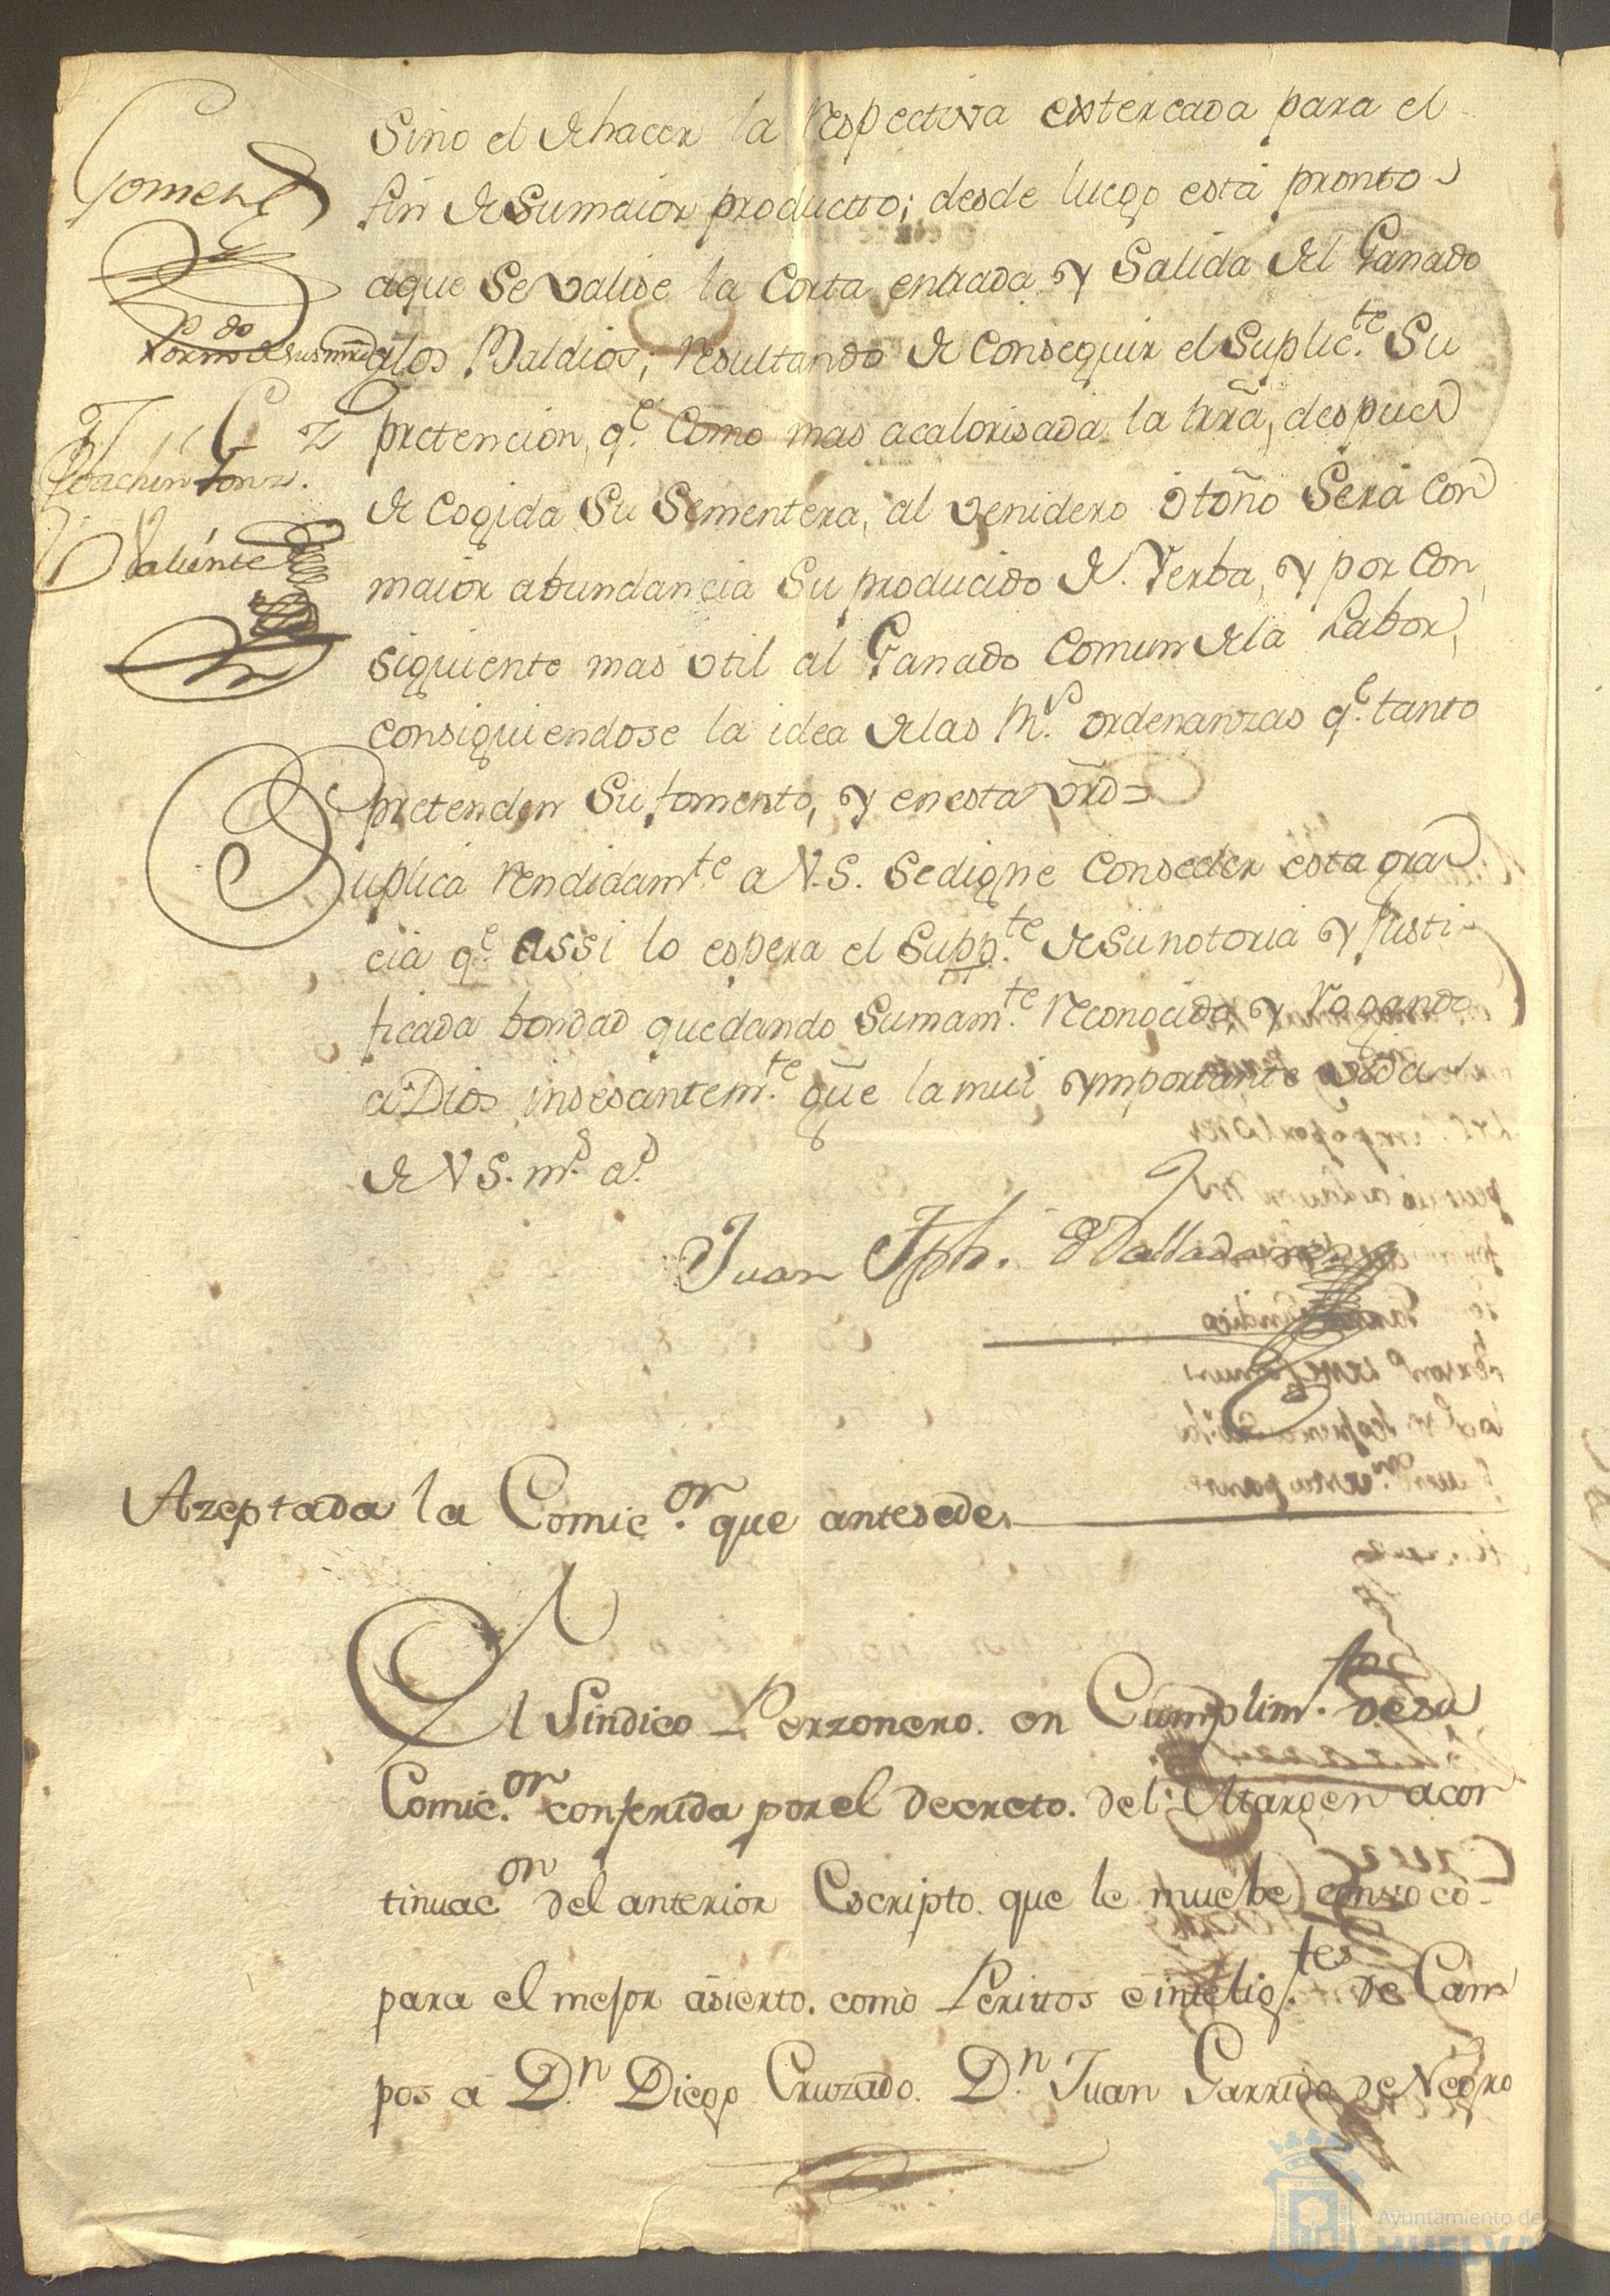 Gomez
Por mdo de sus mrds
Joachin Gonz.
Valiente
Sino el de hacer la respectiva estercada para el
fin de Su maior producto; desde luego está pronto
a que Se valise la Corta entrada y Salida del Ganado
a los Valdios; resultando de Conseguir el Suplicte. Su
pretencion, qe. Como mas acalorisada la trrã, despues
de Cogida Su Sementera, al venidero otoño Será Con
maior abundancia Su producido de Yerba, y por Con
siguiente mas vtil al Ganado Comun de la Labor,
consiguiendose la idea de las Rs. ordenanzas qe. tanto
pretenden Su fomento, y en esta vrd=
Suplica rendidamte. a V.S. Se digne Conseder esta gra
cia qe. assi lo espera el Suppte. de Su notoria y Justi
ficada bondad quedando Sumamte. reconocido, y rogando
a Dios insesantemte. gũe la mui ymportante vida
de V S. ms. as.
Juan Jph. Valladares
Azeptada la Comicon. que antesede
El Sindico Perzonero. en Cumplimto. de su
Comicon. conferida por el decreto. del Margen a con
tinuacon del anterior Escripto. que le muebe convocó
para el mejor asierto. como Peritos e inteligtes. de Cam
pos a Dn. Diego Cruzado. Dn. Juan Garrido de Negro
Ayuntamiento de
HUELVA